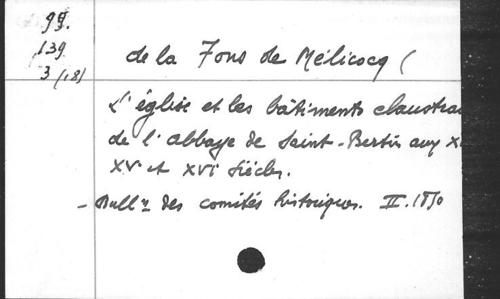 99.
139
3 (18)
de la Fons de Mélicocq (
L'église et les bâtiments claustrau
de l'abbaye de Saint-Bertin aux X
XV et XVI siècles.
- Bull. des comités historiques. II. 1850